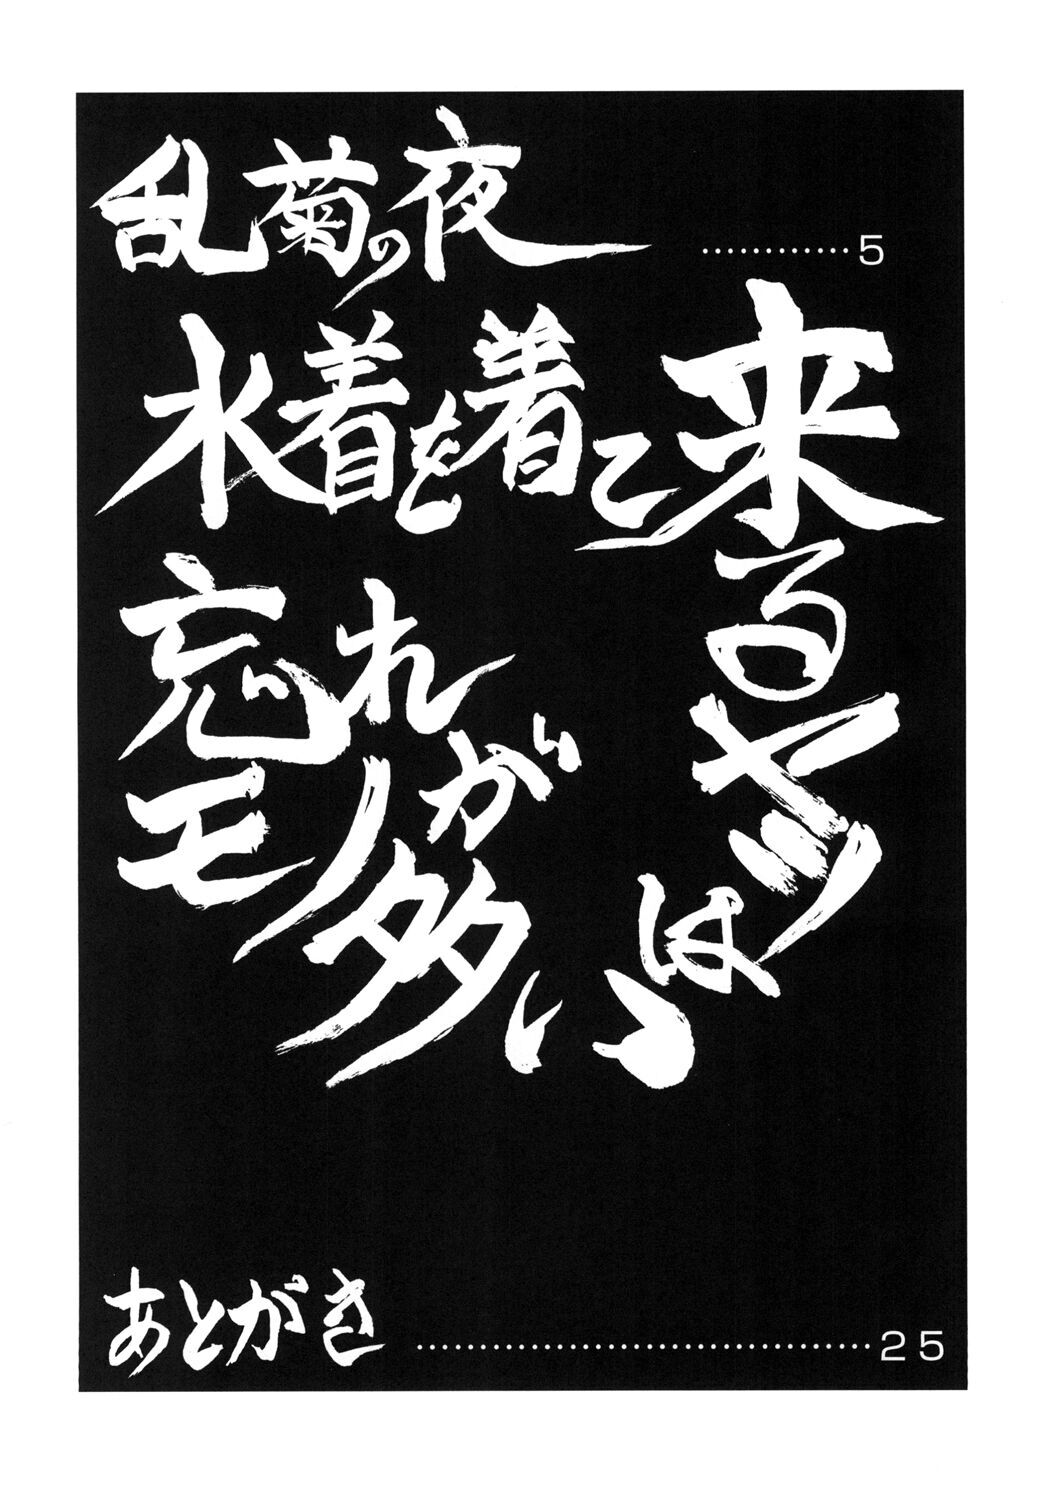 乱菊の夜 …………5
水着を着て来るヤツは
忘れモノが多い
あとがき …………………………………25